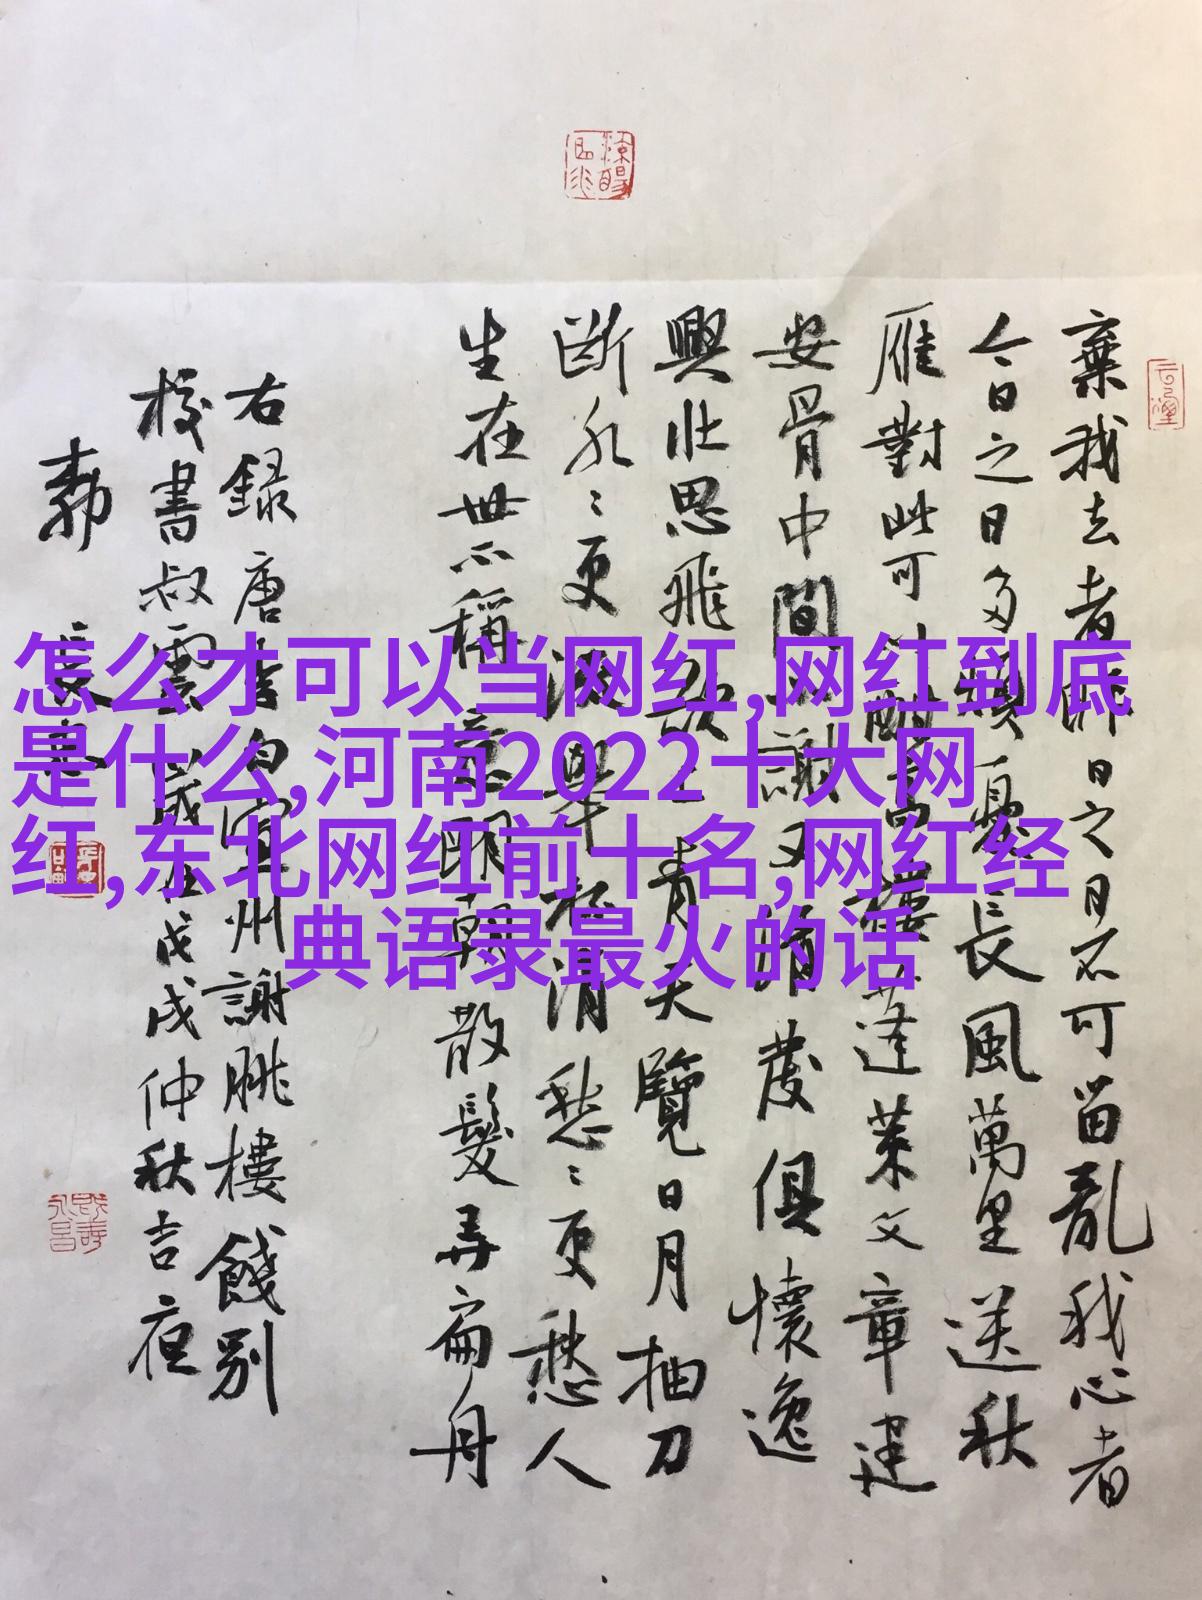 怎么才可以当网红,网红到底
是什么,河南2022十大网
红,东北网红前十名,网红经
典语录最火的话
棄我去者昨日之日不可留亂我心者
今日之日多煩憂長風萬里送秋
雁對此可以酣高樓蓬萊文章建
安骨中間小謝又清發俱懷逸
興壯思飛欲上青天覽日月抽刀
斷水々更流舉杯消愁々更愁人
生在世不稱意明朝散髮弄扁舟
右録唐李白宣州謝朓樓餞別
校書叔雲歲在戊戌仲秋吉夜